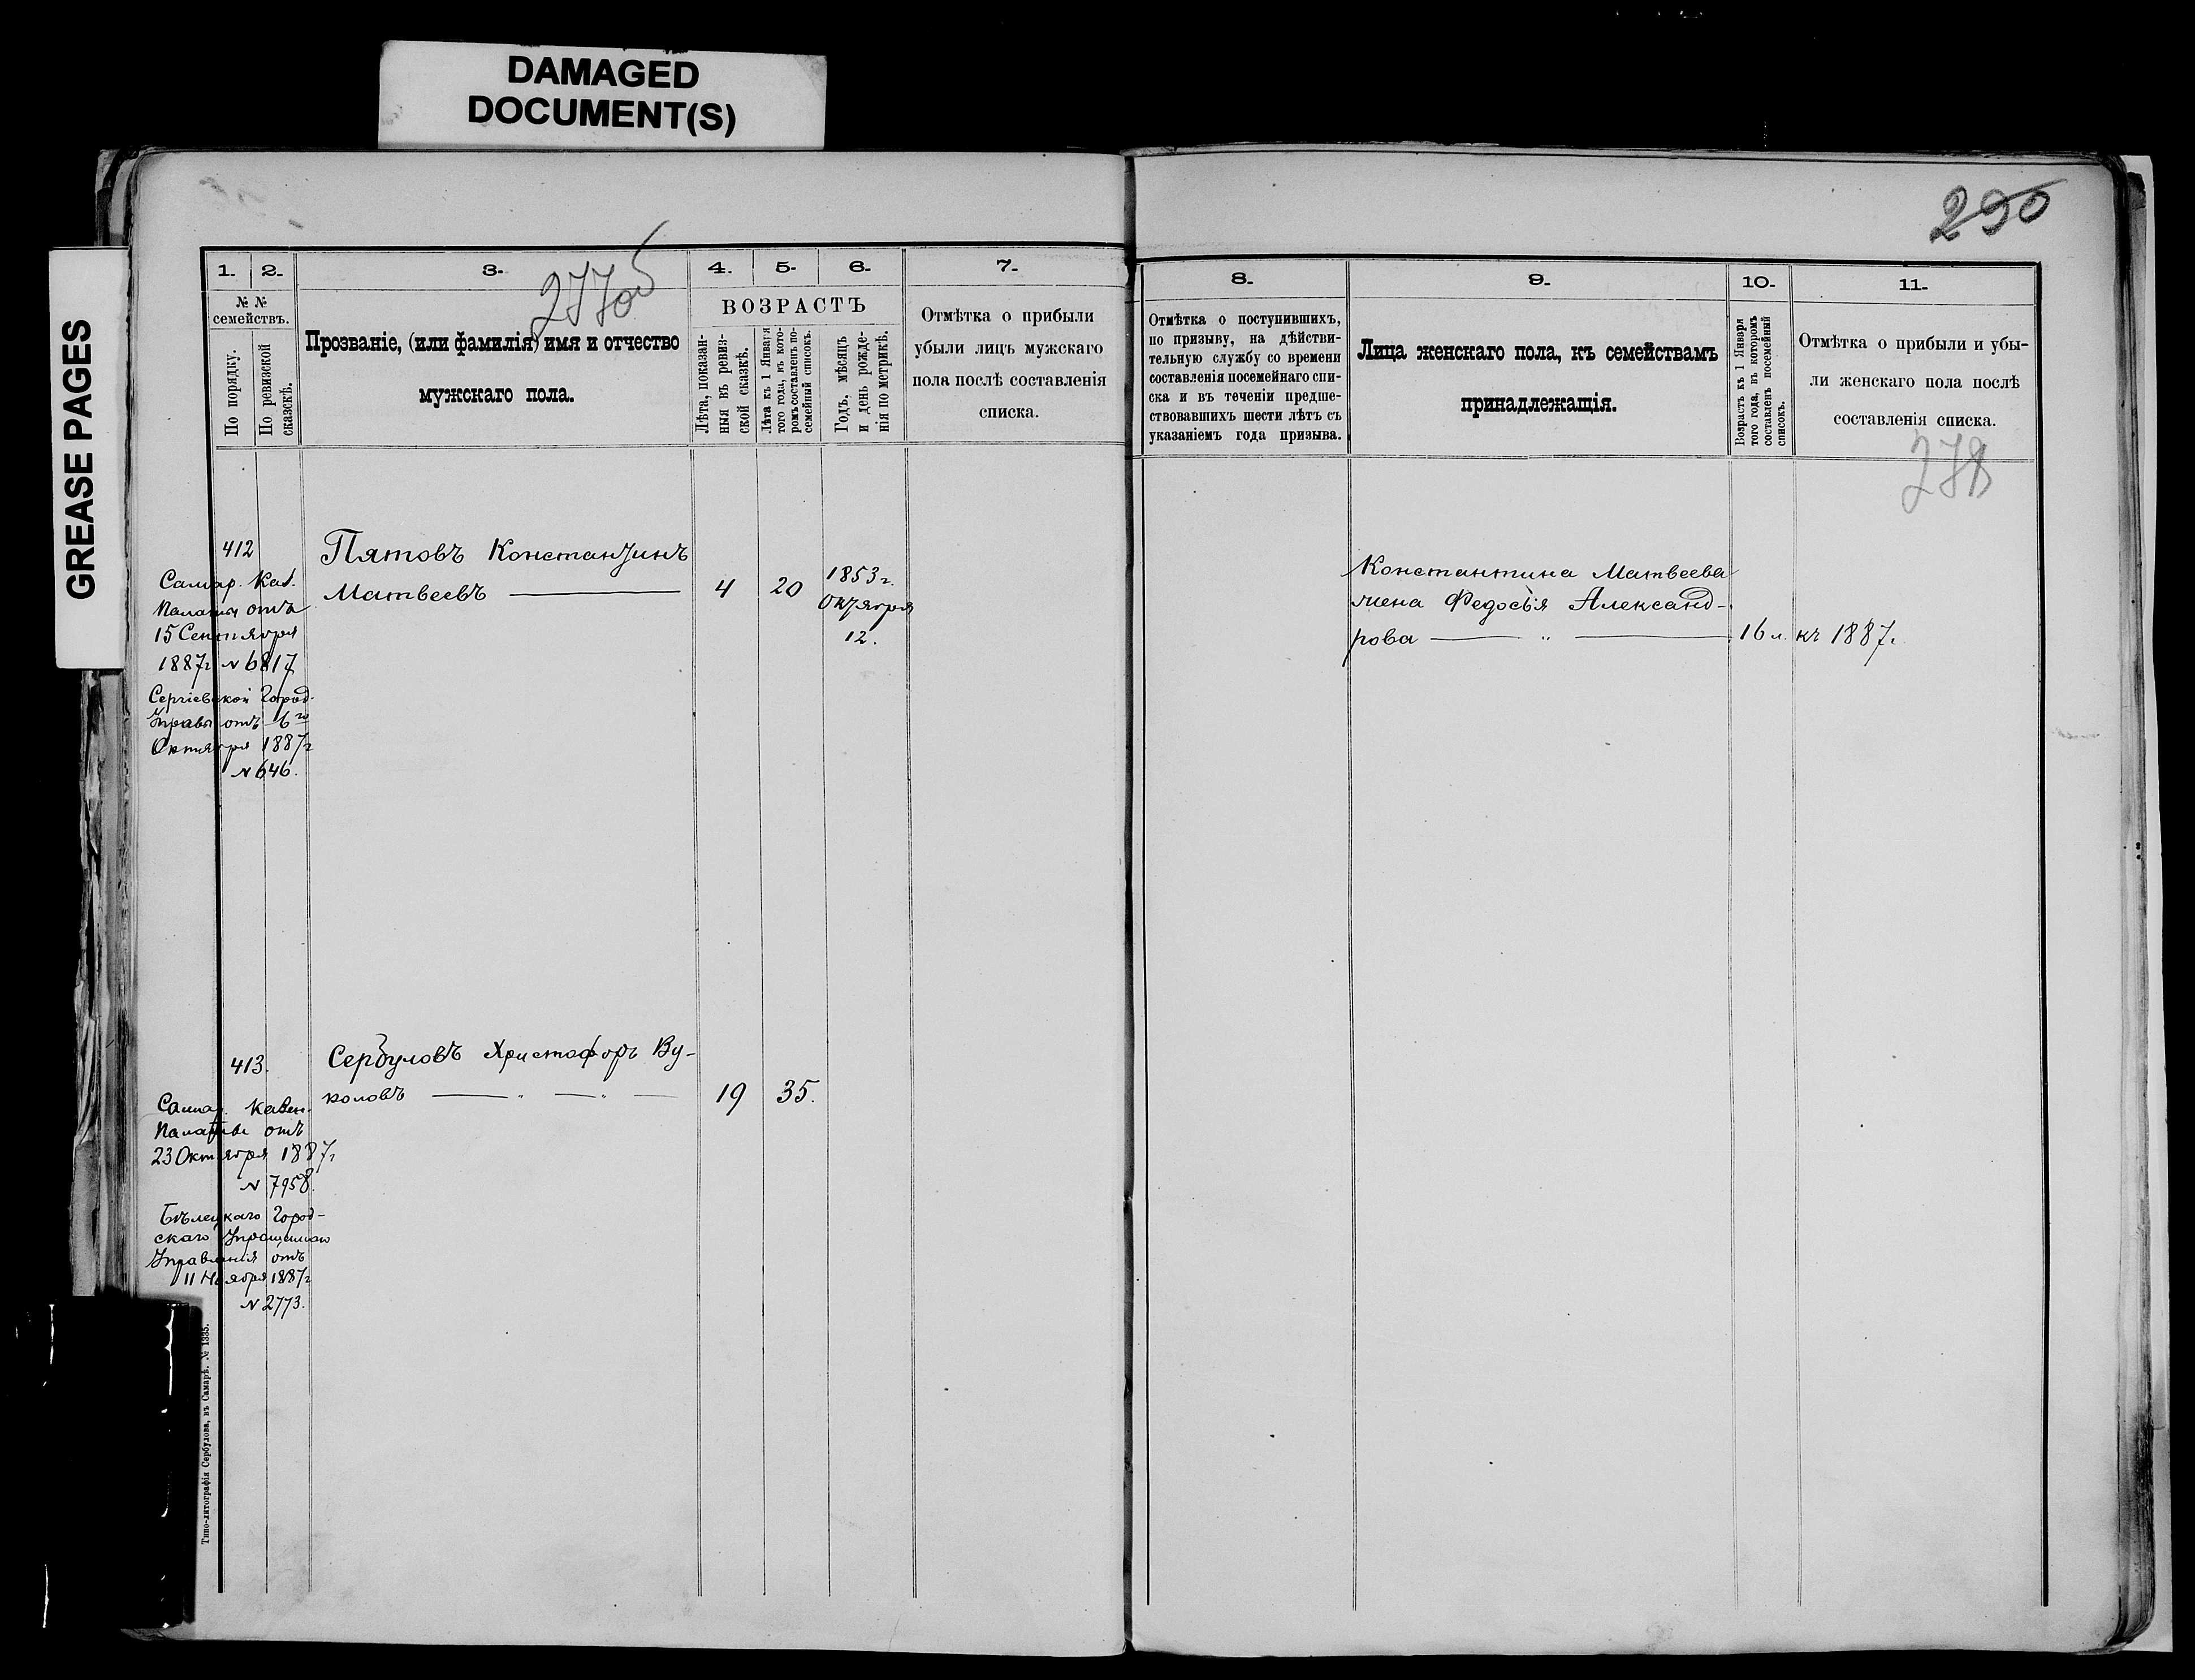 DAMAGED
DOCUMENT(S)
GREASE PAGES
290
277об
1.
2.
3.
4.
5.
6.
7.
№ №
семействъ.
По порядку.
По ревизской
сказкѣ.
Прозваніе, (или фамилія) имя и отчество
мужскаго пола.
ВОЗРАСТЪ
Лѣта, показан-
ныя въ ревиз-
ской сказкѣ.
Лѣта къ 1 Января
того года, въ кото-
ромъ составленъ по-
семейный списокъ.
Годъ, мѣсяцъ
и день рожде-
нія по метрикѣ.
Отмѣтка о прибыли
убыли лицъ мужскаго
пола послѣ составленія
списка.
412
Самар. Каз.
Палаты отъ
15 Сентября
1887г. № 6817
Сергіевской Город.
Управы отъ 6го
Октября 1887г
№ 646.
Пятовъ Константинъ
Матвеевъ
4
20
1853г.
Октября
12.
413.
Самар. Казен.
Палаты отъ
23 Октября 1887г
№ 7958.
Бѣлецкаго Город-
скаго
Управленія отъ
11 Ноября 1887г
№ 2773.
Сербуловъ Христофоръ Ву-
коловъ
19
35.
Типо-литографія Сербулова, въ Самарѣ. № 1885.
8.
9.
10.
11.
Отмѣтка о поступившихъ,
по призыву, на дѣйстви-
тельную службу со времени
составленія посемейнаго спи-
ска и въ теченіи предше-
ствовавшихъ шести лѣтъ съ
указаніемъ года призыва.
Лица женскаго пола, къ семействамъ
принадлежащія.
Возрастъ къ 1 Января
того года, въ которомъ
составленъ посемейный
списокъ.
Отмѣтка о прибыли и убы-
ли женскаго пола послѣ
составленія списка.
278
Константина Матвеева
жена Федосья Александ-
рова
16 л. къ 1887г.